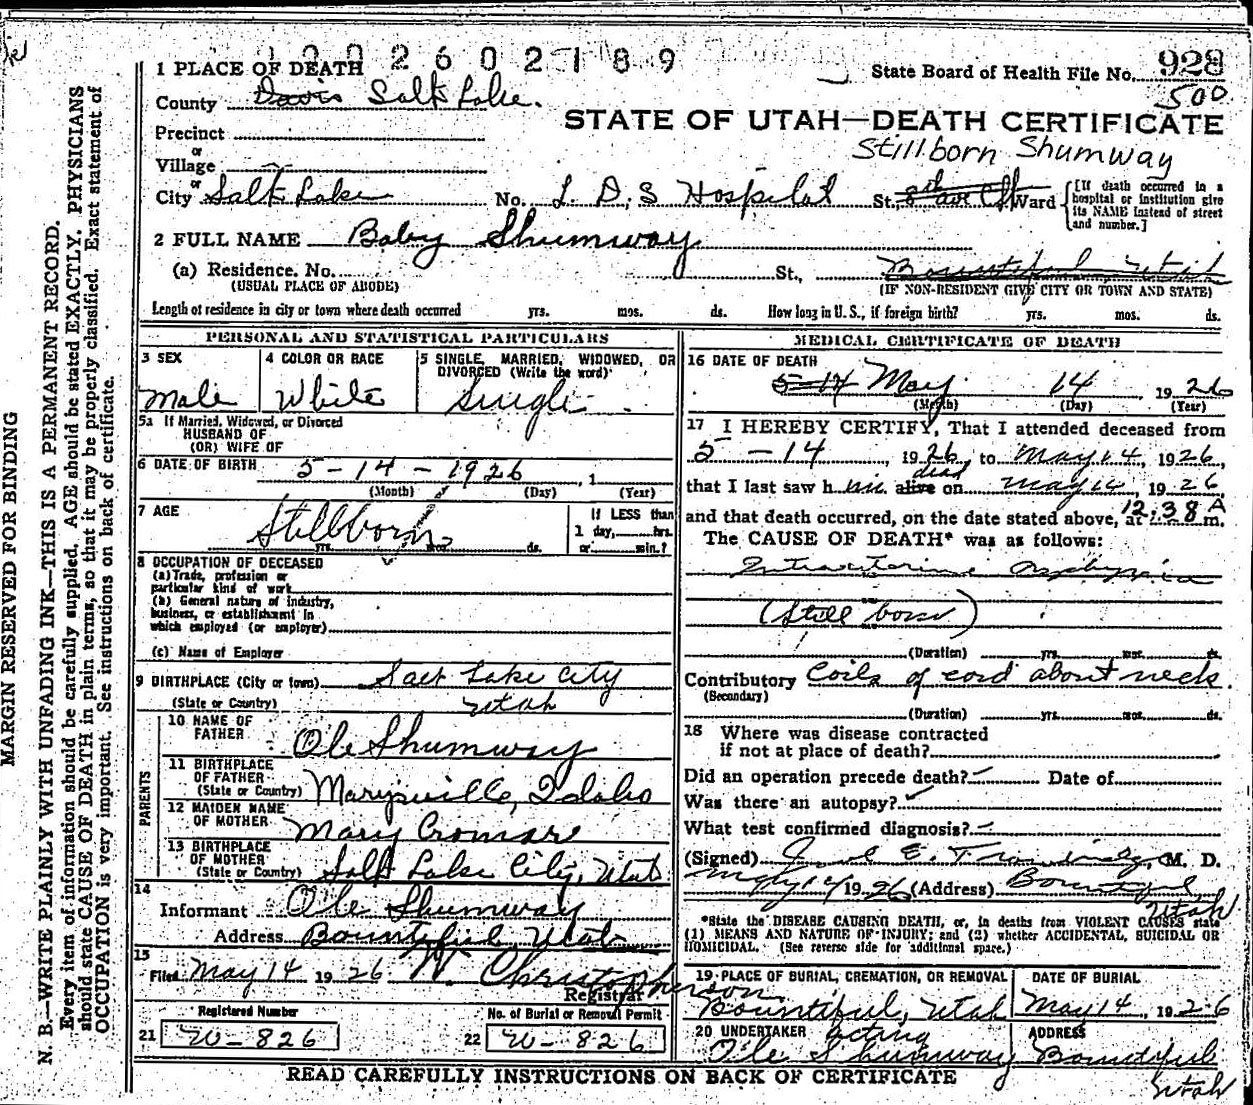 1002602189
1 PLACE OF DEATH
State Board of Health File No. 928
500
County Davis Salt Lake.
STATE OF UTAH—DEATH CERTIFICATE
Stillborn Shumway
Precinct
or
Village
or
City Salt Lake No. L. D. S Hospital St. 8th ave C st Ward
[If death occurred in a hospital or institution give its NAME instead of street and number.]
2 FULL NAME Baby Shumway
(a) Residence. No. St., Bountiful Utah
(USUAL PLACE OF ABODE) (IF NON-RESIDENT GIVE CITY OR TOWN AND STATE)
Length of residence in city or town where death occurred yrs. mos. ds. How long in U. S., if foreign birth? yrs. mos. ds.
PERSONAL AND STATISTICAL PARTICULARS
3 SEX
Male
4 COLOR OR RACE
White
5 SINGLE, MARRIED, WIDOWED, OR DIVORCED (Write the word)
Single
5a If Married, Widowed, or Divorced
HUSBAND OF
(OR) WIFE OF
6 DATE OF BIRTH 5-14-1926, 1
(Month) (Day) (Year)
7 AGE
Stillborn
yrs. mos. ds.
If LESS than
1 day, hrs.
or min.?
8 OCCUPATION OF DECEASED
(a) Trade, profession or
particular kind of work
(b) General nature of industry,
business, or establishment in
which employed (or employer)
(c) Name of Employer
9 BIRTHPLACE (City or town) Salt Lake City
(State or Country) Utah
PARENTS
10 NAME OF FATHER Ole Shumway
11 BIRTHPLACE OF FATHER (State or Country) Marysville, Idaho
12 MAIDEN NAME OF MOTHER Mary Cromare
13 BIRTHPLACE OF MOTHER (State or Country) Salt Lake City, Utah
14
Informant Ole Shumway
Address Bountiful, Utah
15
Filed May 14 1926 W. Christopherson
Registrar
Registered Number
21 W-826
No. of Burial or Removal Permit
22 W-826
MEDICAL CERTIFICATE OF DEATH
16 DATE OF DEATH
5-14 May 14 1926
(Month) (Day) (Year)
17 I HEREBY CERTIFY, That I attended deceased from
5-14, 1926, to May 14, 1926,
that I last saw him alive dead on May 14, 1926
and that death occurred, on the date stated above, at 12:38 A m.
The CAUSE OF DEATH* was as follows:
Intrauterine Asphyxia
(Still born)
(Duration) yrs. mos. ds.
Contributory Coils of cord about neck.
(Secondary)
(Duration) yrs. mos. ds.
18 Where was disease contracted
if not at place of death?
Did an operation precede death? – Date of
Was there an autopsy? ✓
What test confirmed diagnosis? –
(Signed) M. D.
May 14 1926 (Address) Bountiful
Utah
*State the DISEASE CAUSING DEATH, or, in deaths from VIOLENT CAUSES state
(1) MEANS AND NATURE OF INJURY; and (2) whether ACCIDENTAL, SUICIDAL OR
HOMICIDAL. (See reverse side for additional space.)
19 PLACE OF BURIAL, CREMATION, OR REMOVAL
Bountiful, Utah
DATE OF BURIAL
May 14, 1926
20 UNDERTAKER acting
Ole Shumway
ADDRESS
Bountiful
Utah
READ CAREFULLY INSTRUCTIONS ON BACK OF CERTIFICATE
MARGIN RESERVED FOR BINDING
N. B.—WRITE PLAINLY WITH UNFADING INK—THIS IS A PERMANENT RECORD.
Every item of information should be carefully supplied. AGE should be stated EXACTLY. PHYSICIANS
should state CAUSE OF DEATH in plain terms, so that it may be properly classified. Exact statement of
OCCUPATION is very important. See instructions on back of certificate.